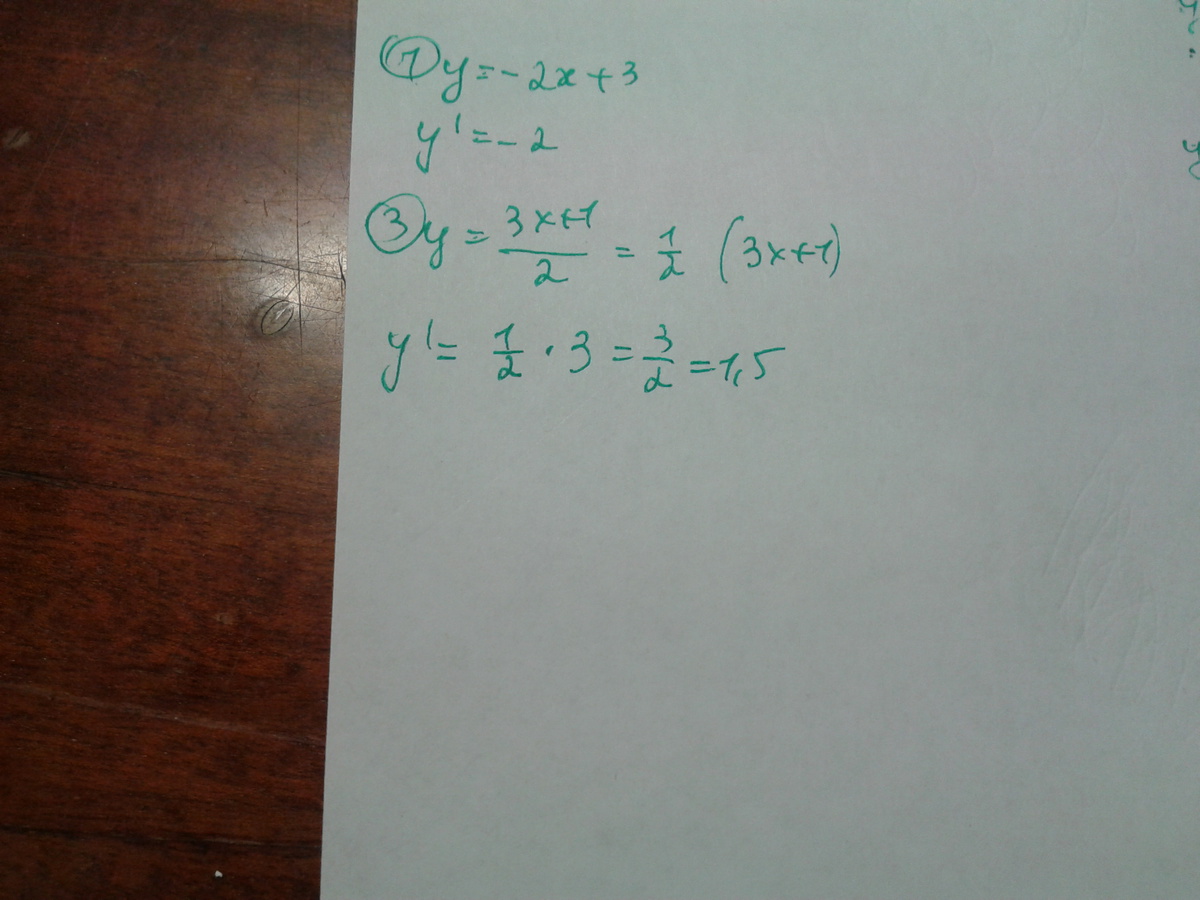 ① y = -2x + 3
y' = -2
③ y = \frac{3x+1}{2} = \frac{1}{2} (3x+1)
y' = \frac{1}{2} · 3 = \frac{3}{2} = 1,5